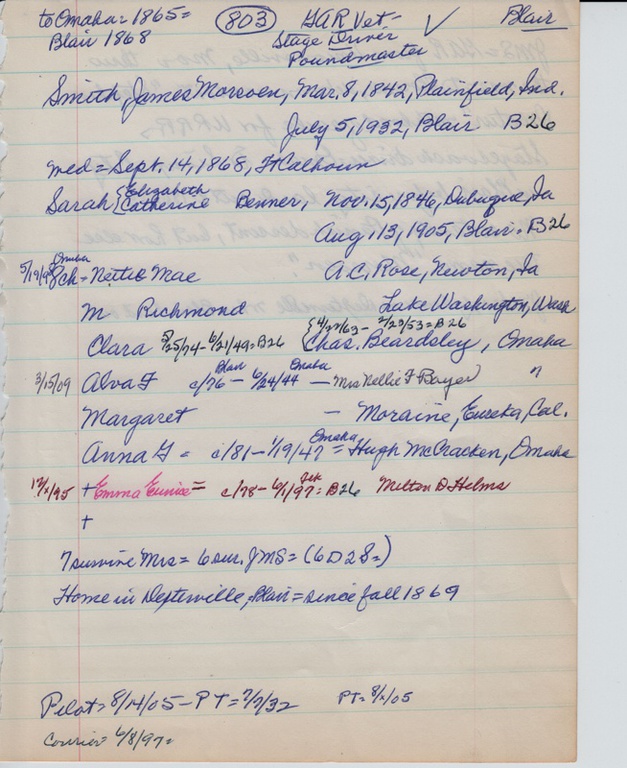 to Omaha = 1865 = 803 GAR Vet - ✓ Blair
Blair 1868 Stage Driver
Poundmaster
Smith, James Moreven, Mar. 8, 1842, Plainfield, Ind.
July 5, 1932, Blair B26
Med = Sept. 14, 1868, Ft Calhoun
Sarah {Elizabeth Catherine Benner, Nov. 15, 1846, Dubuque, Ia
Aug 13, 1905, Blair. B26
Omaha
5/19/98 8ch = Nettie Mae A.C. Rose, Newton, Ia
M Richmond Lake Washington, Wash
{4/27/63 - 2/23/53 = B26
Clara 5/25/74 - 6/21/49 = B26 Chas. Beardsley, Omaha
Blair Omaha
3/15/09 Alva F c/76 - 6/24/44 - Mrs Nellie F Boyer "
Margaret - Moraine, Eureka, Cal.
Omaha
Anna G = c/81 - 1/19/47 = Hugh McCracken, Omaha
12/x/95 + Emma Eunice = c/78 - 6/1/97 = B26 Milton D Helms
+
7 survive Mrs = 6 sur. JMS = (6D 2S =)
Home in Dexterville, Blair = since fall 1869
Pilot = 8/14/05 - PT = 7/7/32 PT = 8/x/05
Courier = 6/8/97 =